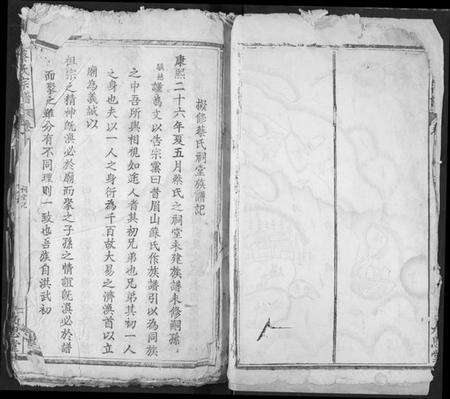 擬修蔡氏祠堂族譜記
康熙二十六年夏五月蔡氏之祠堂未建族譜未修嗣孫
謹為文以告宗黨曰昔眉山蘇氏作族譜引以為同族
之中吾所與相視如途人者其初兄弟也兄弟其初一人
之身也夫以一人之身衍為千百故大易之濟渙首以立
廟為義誠以
祖宗之精神既渙必於廟而聚之子孫之情誼既渙必於譜
而聚之雖分有不同理則一致也吾族自洪武初